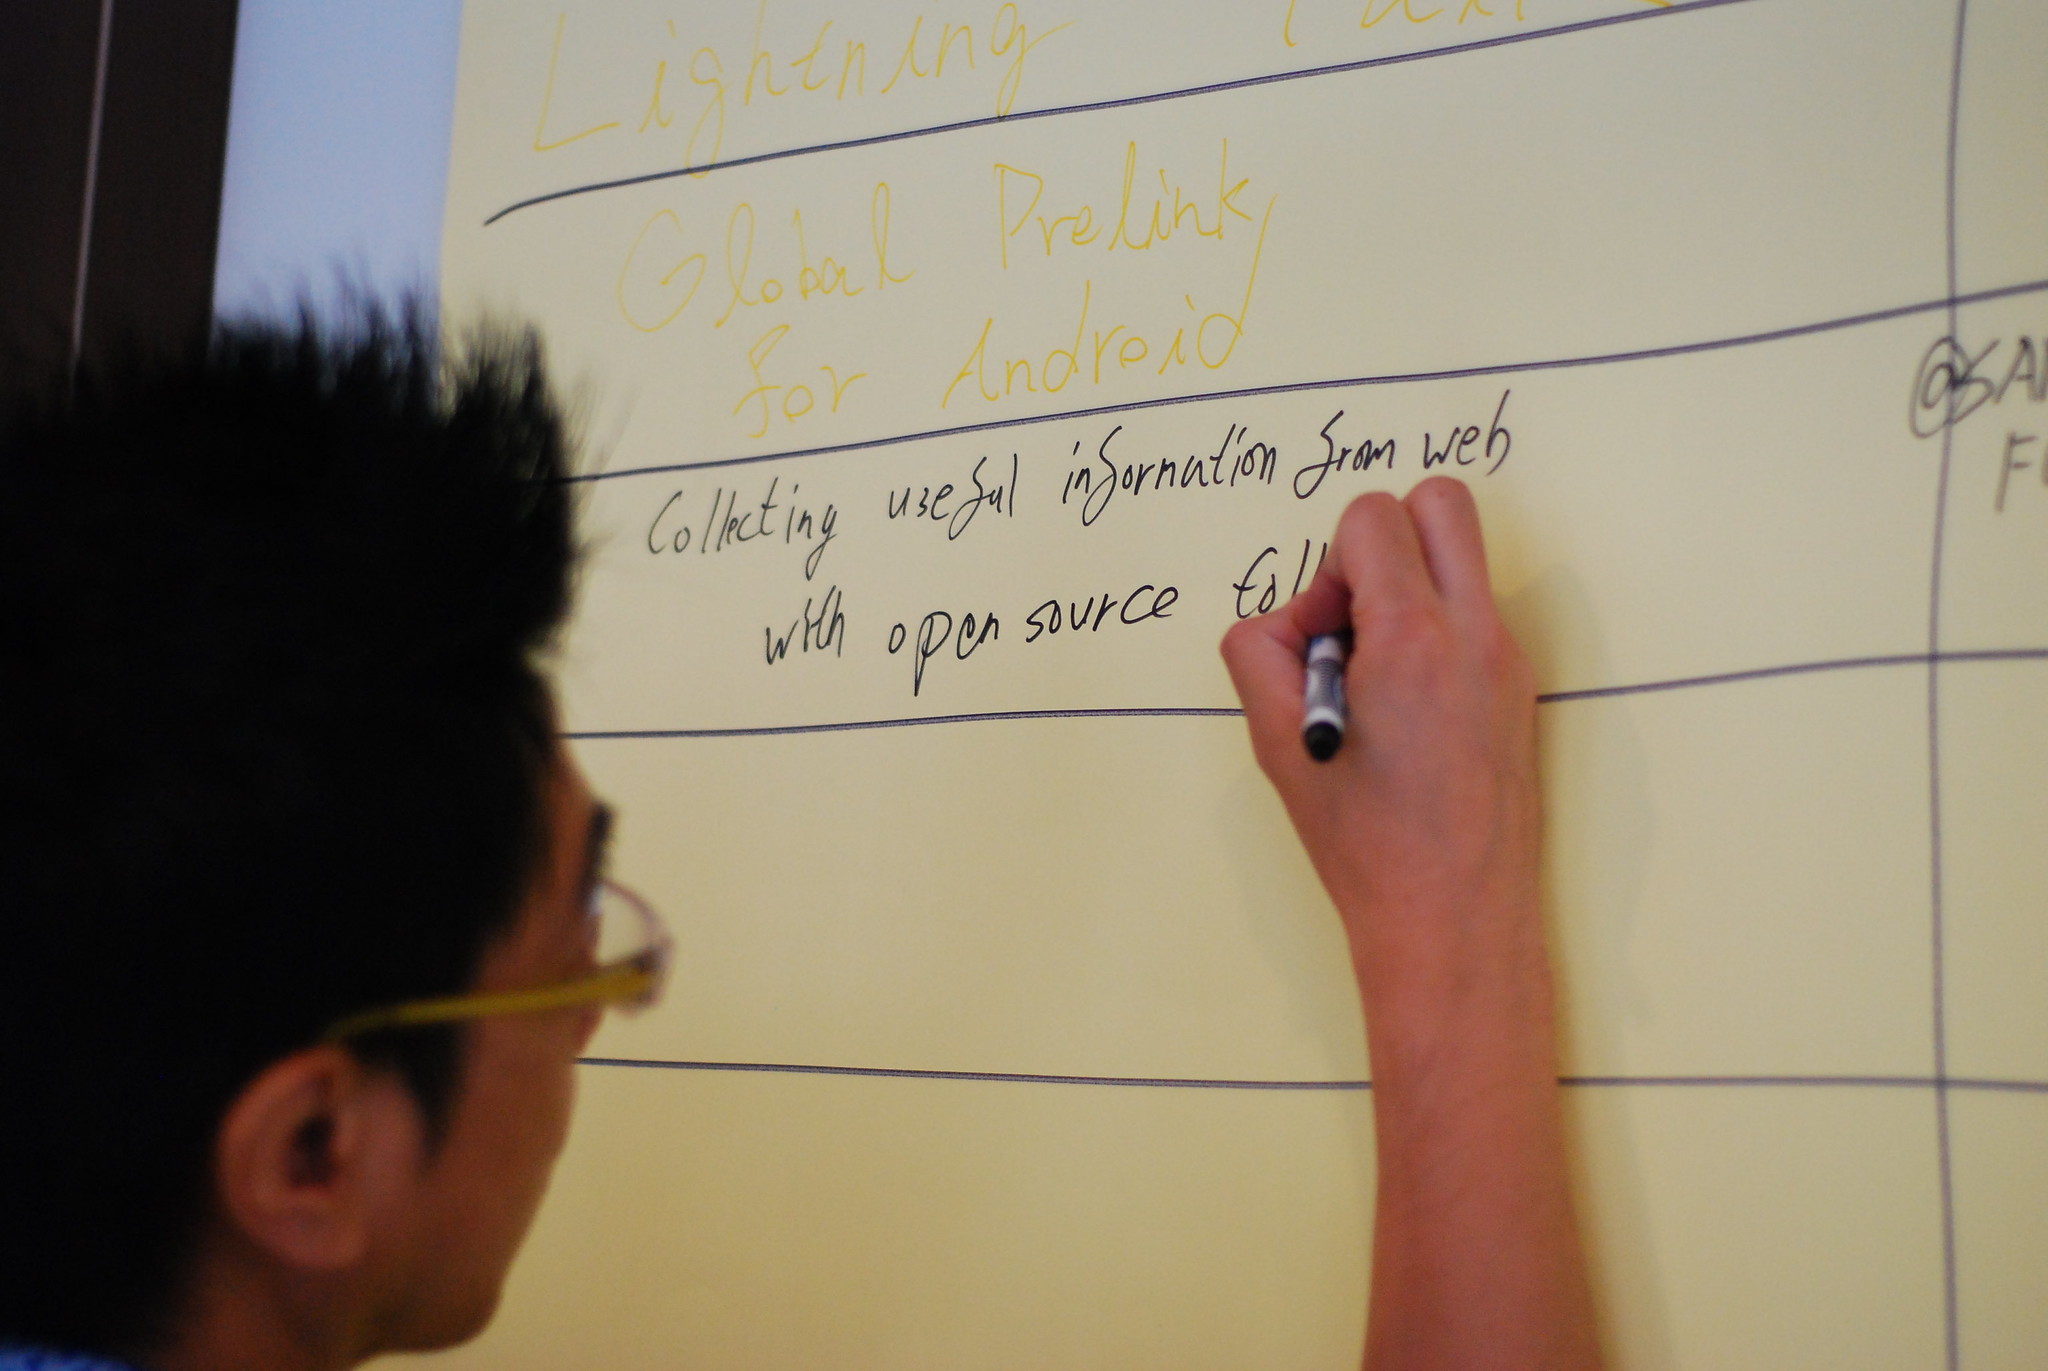 Lightning
Global Prelink,
for Android
Collecting useful information from web
with open source